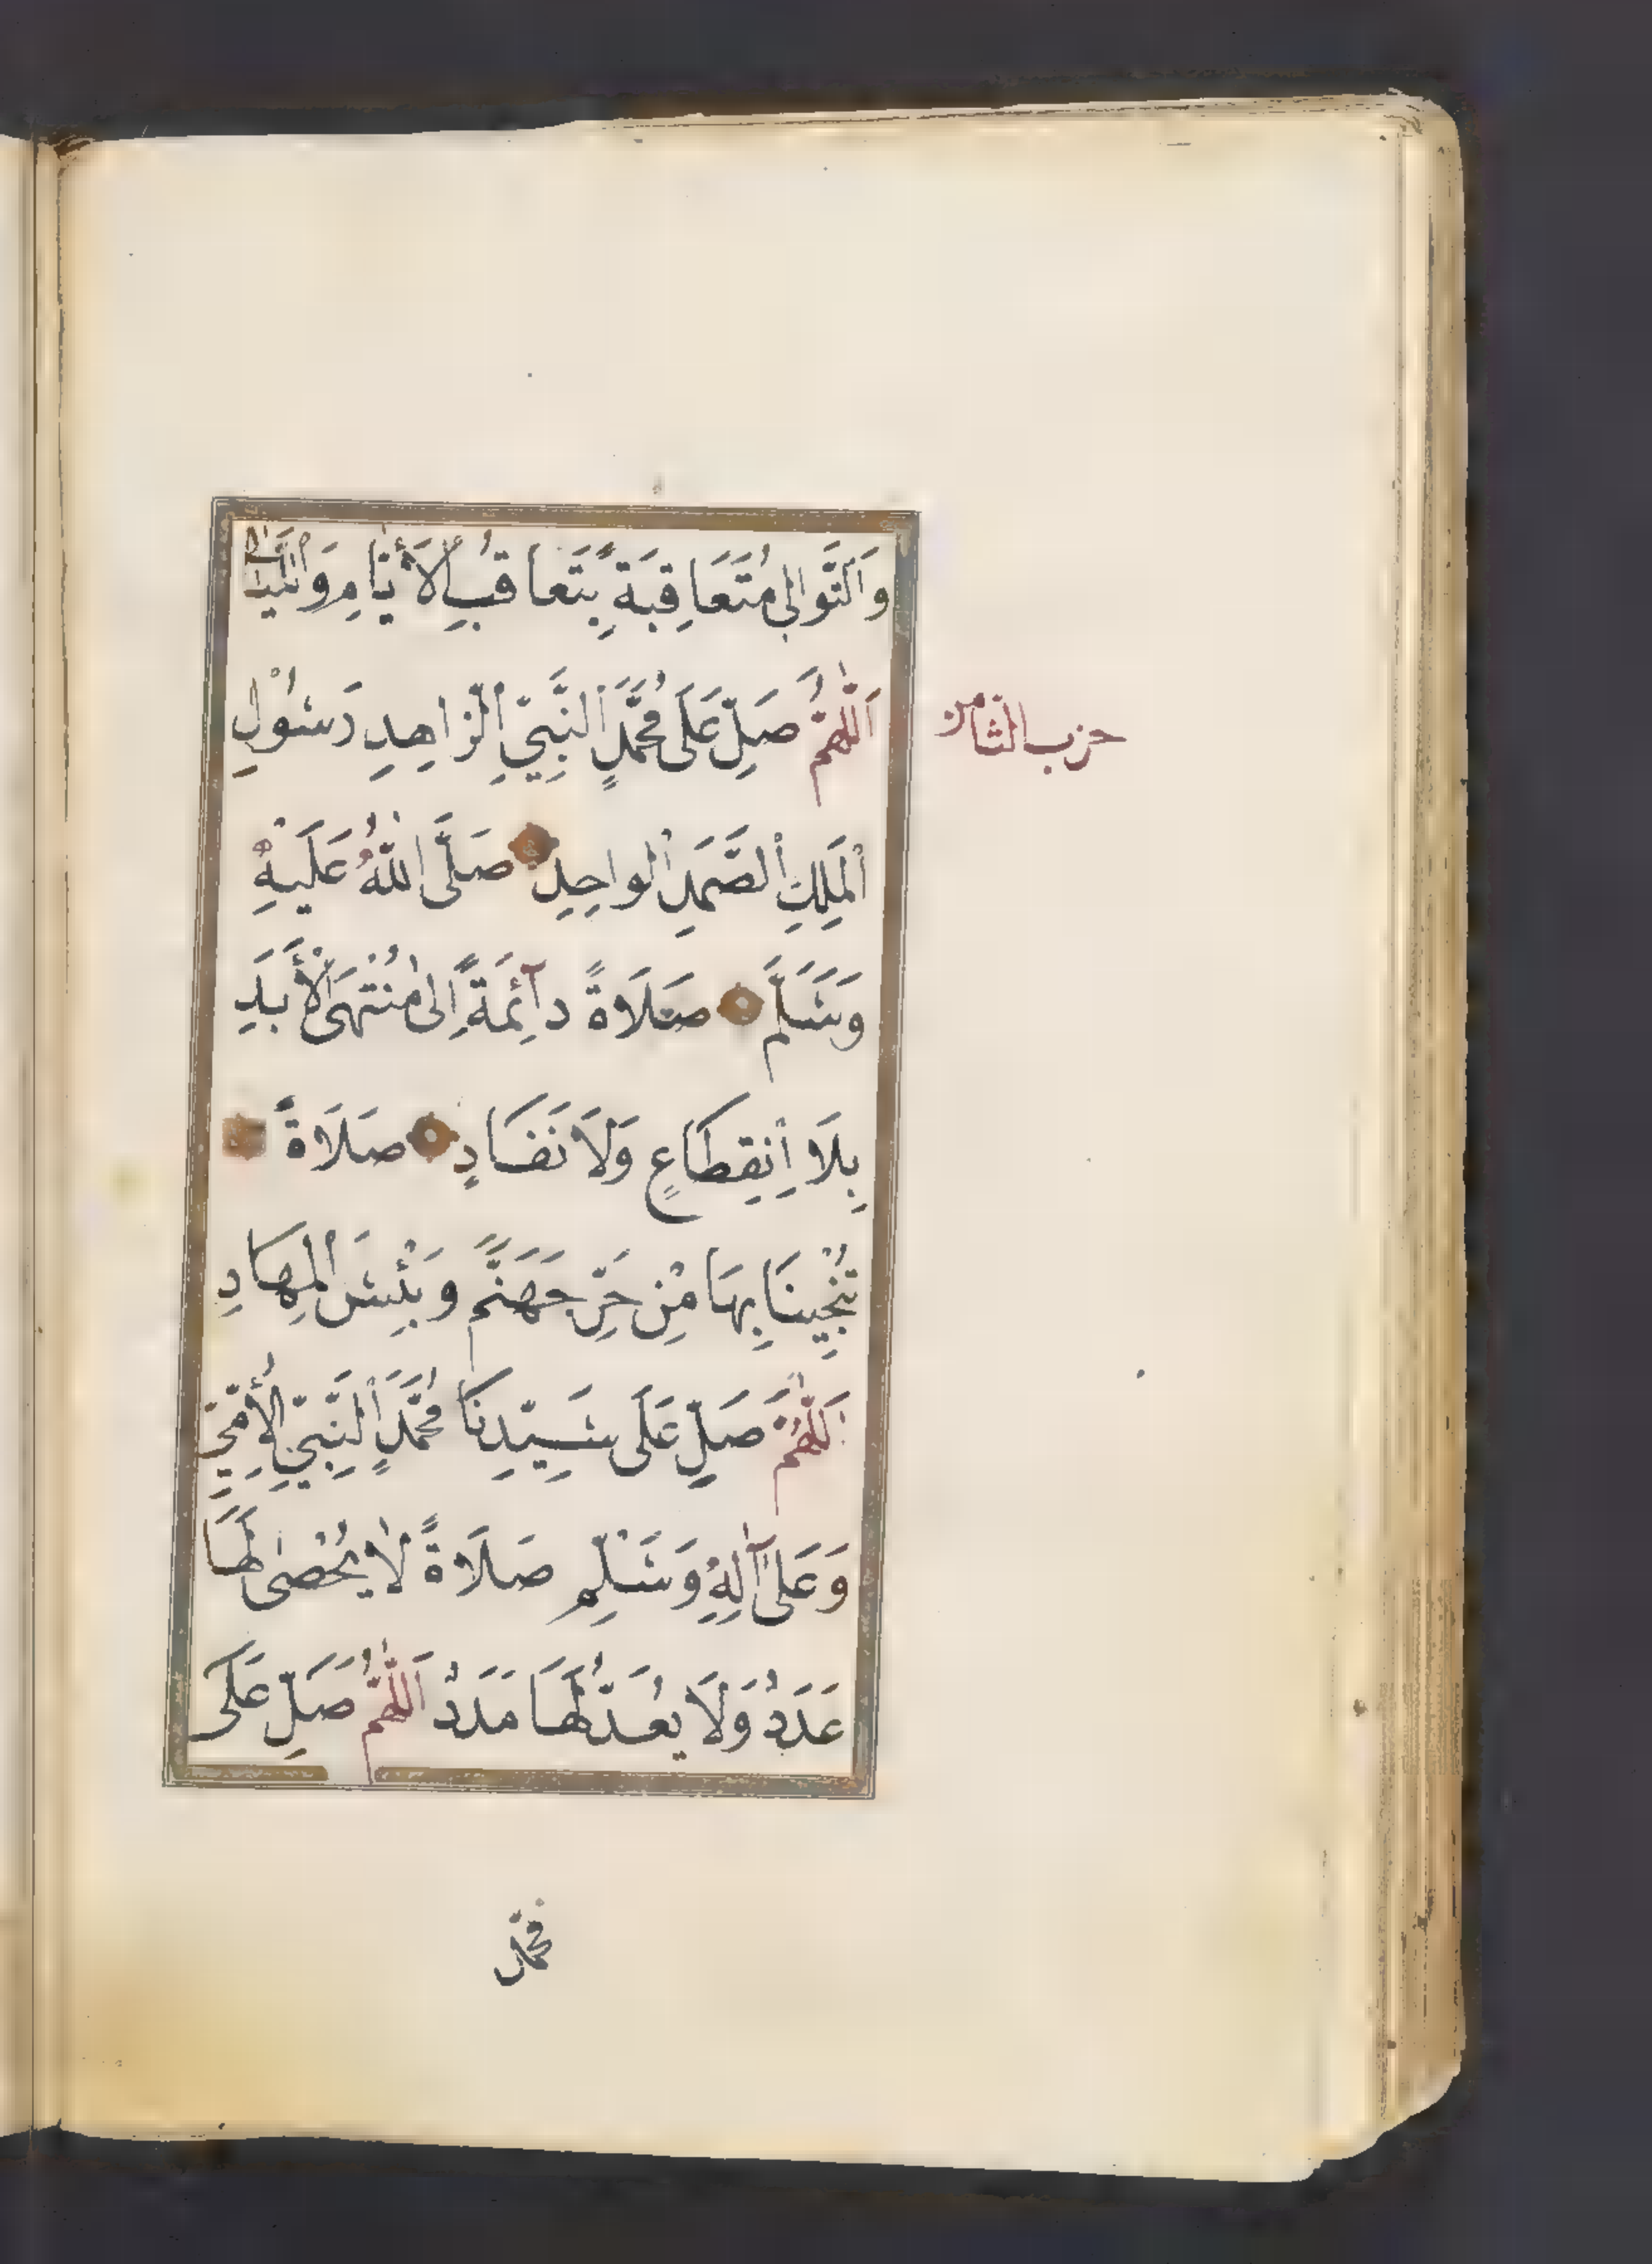 وَالتَّوَالِي مُتَعَاقِبَةً بِتَعَاقُبِ الْأَيَّامِ وَاللَّيَالِي
اَللّٰهُمَّ صَلِّ عَلَى مُحَمَّدٍ النَّبِيِّ الزَّاهِدِ رَسُولِ
حزب الثامن
الْمَلِكِ الصَّمَدِ الْوَاحِدِ صَلَّى اللّٰهُ عَلَيْهِ
وَسَلَّمَ صَلَاةً دَآئِمَةً اِلَى مُنْتَهَى الْأَبَدِ
بِلَا اِنْقِطَاعٍ وَلَا نَفَادٍ صَلَاةً
تُنْجِينَا بِهَا مِنْ حَرِّ جَهَنَّمَ وَبِئْسَ الْمِهَادِ
اَللّٰهُمَّ صَلِّ عَلَى سَيِّدِنَا مُحَمَّدٍ النَّبِيِّ الْأُمِّيِّ
وَعَلَى آلِهِ وَسَلِّمْ صَلَاةً لَا يُحْصَى لَهَا
عَدَدٌ وَلَا يُعَدُّ لَهَا مَدَدٌ اَللّٰهُمَّ صَلِّ عَلَى
محمد